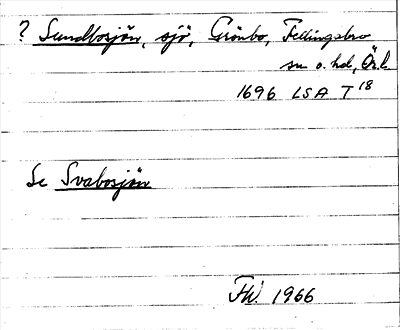 ? Sundbosjön, sjö, Grönbo, Fellingsbro
sn o. hd, Ör. l
1696 LSA T 18
Se Svabosjön
FW. 1966